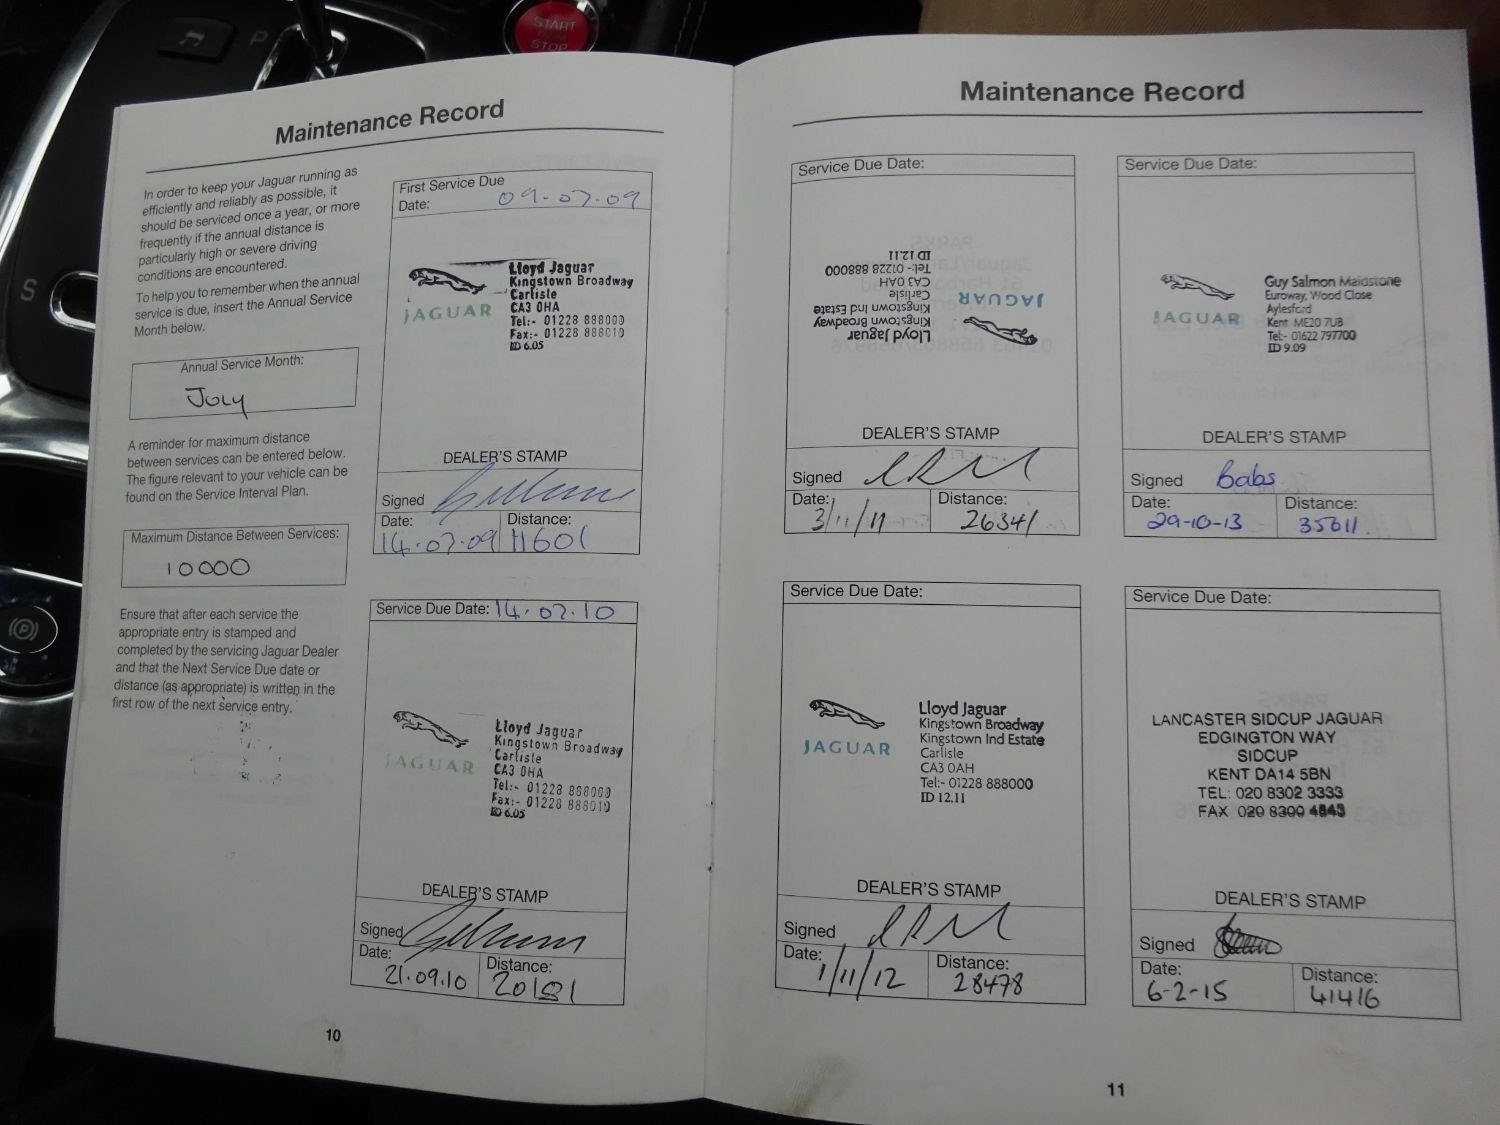 START
STOP
P
S
Maintenance Record
In order to keep your Jaguar running as
efficiently and reliably as possible, it
should be serviced once a year, or more
frequently if the annual distance is
particularly high or severe driving
conditions are encountered.
To help you to remember when the annual
service is due, insert the Annual Service
Month below.
Annual Service Month:
July
A reminder for maximum distance
between services can be entered below.
The figure relevant to your vehicle can be
found on the Service Interval Plan.
Maximum Distance Between Services:
10000
Ensure that after each service the
appropriate entry is stamped and
completed by the servicing Jaguar Dealer
and that the Next Service Due date or
distance (as appropriate) is written in the
first row of the next service entry.
First Service Due
Date: 09.07.09
JAGUAR
Lloyd Jaguar
Kingstown Broadway
Carlisle
CA3 0HA
Tel:- 01228 888000
Fax:- 01228 888010
ID 6.05
DEALER'S STAMP
Signed
Date: 14.07.09
Distance: 11601
Service Due Date: 14.07.10
JAGUAR
Lloyd Jaguar
Kingstown Broadway
Carlisle
CA3 0HA
Tel:- 01228 888000
Fax:- 01228 888010
ID 6.05
DEALER'S STAMP
Signed
Date: 21.09.10
Distance: 20181
10
Maintenance Record
Service Due Date:
JAGUAR
Lloyd Jaguar
Kingstown Broadway
Kingstown Ind Estate
Carlisle
CA3 0AH
Tel:- 01228 888000
ID 12.11
DEALER'S STAMP
Signed
Date: 3/11/11
Distance: 26341
Service Due Date:
JAGUAR
Guy Salmon Maidstone
Euroway, Wood Close
Aylesford
Kent ME20 7UB
Tel:- 01622 797700
ID 9.09
DEALER'S STAMP
Signed Babs
Date: 29-10-13
Distance: 35011.
Service Due Date:
JAGUAR
Lloyd Jaguar
Kingstown Broadway
Kingstown Ind Estate
Carlisle
CA3 0AH
Tel:- 01228 888000
ID 12.11
DEALER'S STAMP
Signed
Date: 1/11/12
Distance: 28478
Service Due Date:
LANCASTER SIDCUP JAGUAR
EDGINGTON WAY
SIDCUP
KENT DA14 5BN
TEL: 020 8302 3333
FAX 020 8309 4843
DEALER'S STAMP
Signed
Date: 6-2-15
Distance: 41416
11